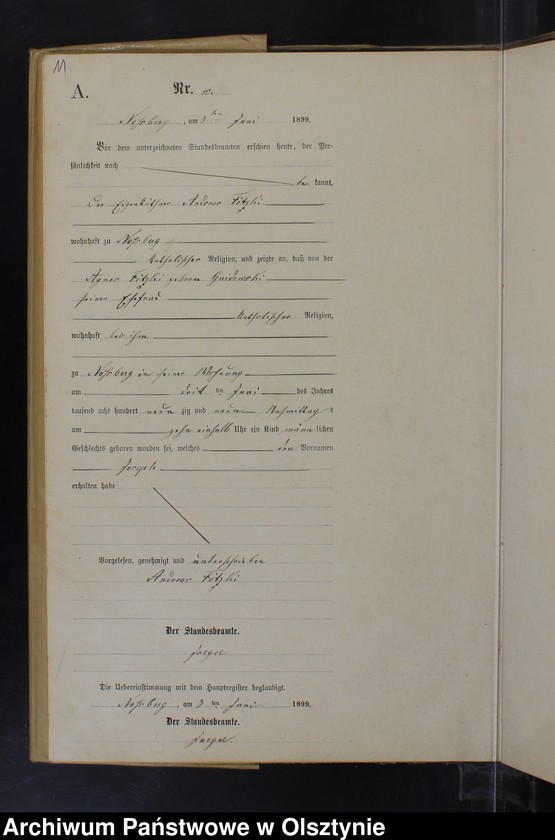 11.
A.
Nr. 10.
am 3ten Juni 1899.
Vor dem unterzeichneten Standesbeamten erschien heute, der Per-
sönlichkeit nach
be kannt,
Der Eigenkäthner Andreas
wohnhaft zu
katholischer Religion, und zeigte an, daß von der
Agnes geboren
seiner Ehefrau
katholischer Religion,
wohnhaft bei ihm
zu in seiner Wohnung
am ten Juni des Jahres
tausend acht hundert neun zig und neun Nachmittag s
um zehn einhalb Uhr ein Kind männ lichen
Geschlechts geboren worden sei, welches den Vornamen
Joseph
erhalten habe
Vorgelesen, genehmigt und unterschrieben
Andreas
Der Standesbeamte.
Die Uebereinstimmung mit dem Hauptregister beglaubigt.
am ten Juni 1899.
Der Standesbeamte.
Archiwum Państwowe w Olsztynie